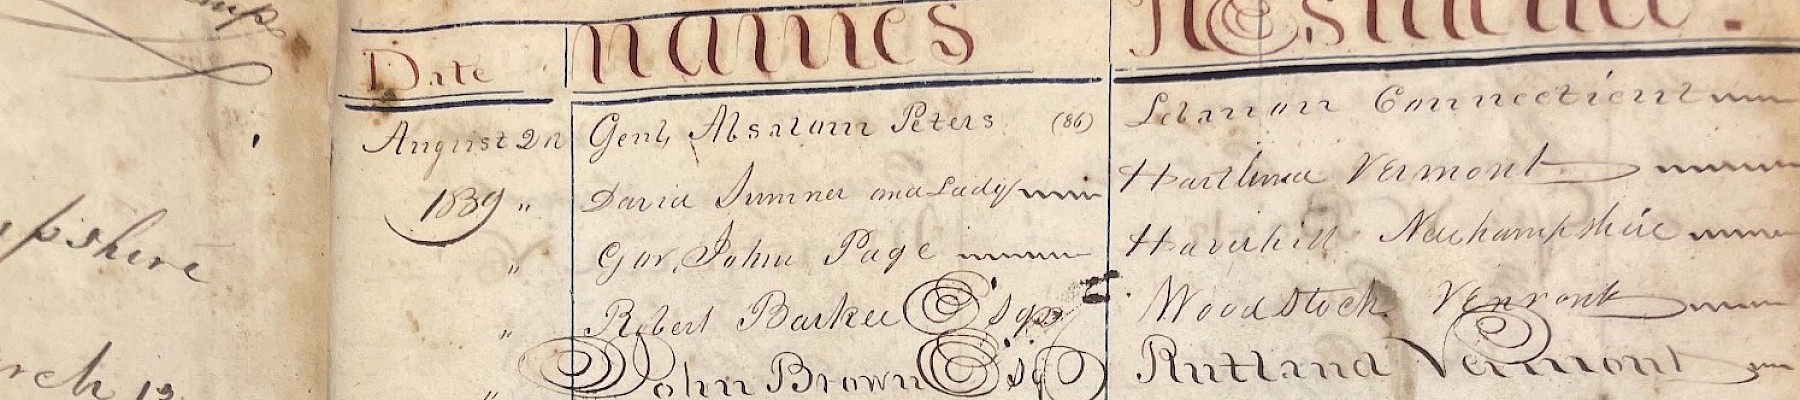 Date names Residence.
August 2n Genl, Absalom Peters (86) Lebanon Connecticut
1839 " David Sumner and Lady Hartland Vermont
" Gov, John Page Haverhill Newhampshire
" Robert Barker Esqr Woodstock Vermont
" John Brown Esq Rutland Vermont
pshire
rch 12